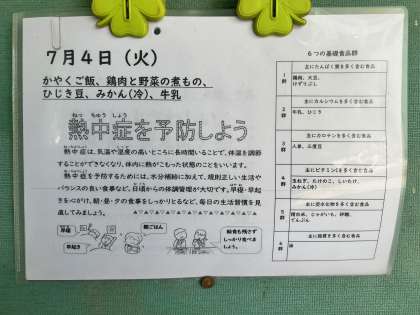 7月4日（火）
かやくご飯、鶏肉と野菜の煮もの、
ひじき豆、みかん(冷)、牛乳
熱中症を予防しよう
熱中症は、気温や湿度の高いところに長時間いることで、体温を調節
することができなくなり、体内に熱がこもった状態のことをいいます。
熱中症を予防するためには、水分補給に加えて、規則正しい生活や
バランスの良い食事など、日頃からの体調管理が大切です。早寝・早起
きを心がけ、朝・昼・夕の食事をしっかりとるなど、毎日の生活習慣を見
直してみましょう。
早寝
早起き
朝ごはん
給食も残さず
しっかり食べま
しょう。
6つの基礎食品群
主にたんぱく質を多く含む食品
1群
鶏肉、大豆、
けずりぶし
主にカルシウムを多く含む食品
2群
牛乳、ひじき
主にカロテンを多く含む食品
3群
人参、三度豆
主にビタミンCを多く含む食品
4群
玉ねぎ、たけのこ、しいたけ、
みかん(冷)
主に炭水化物を多く含む食品
5群
精白米、じゃがいも、砂糖、
でんぷん
主に脂質を多く含む食品
6群
油